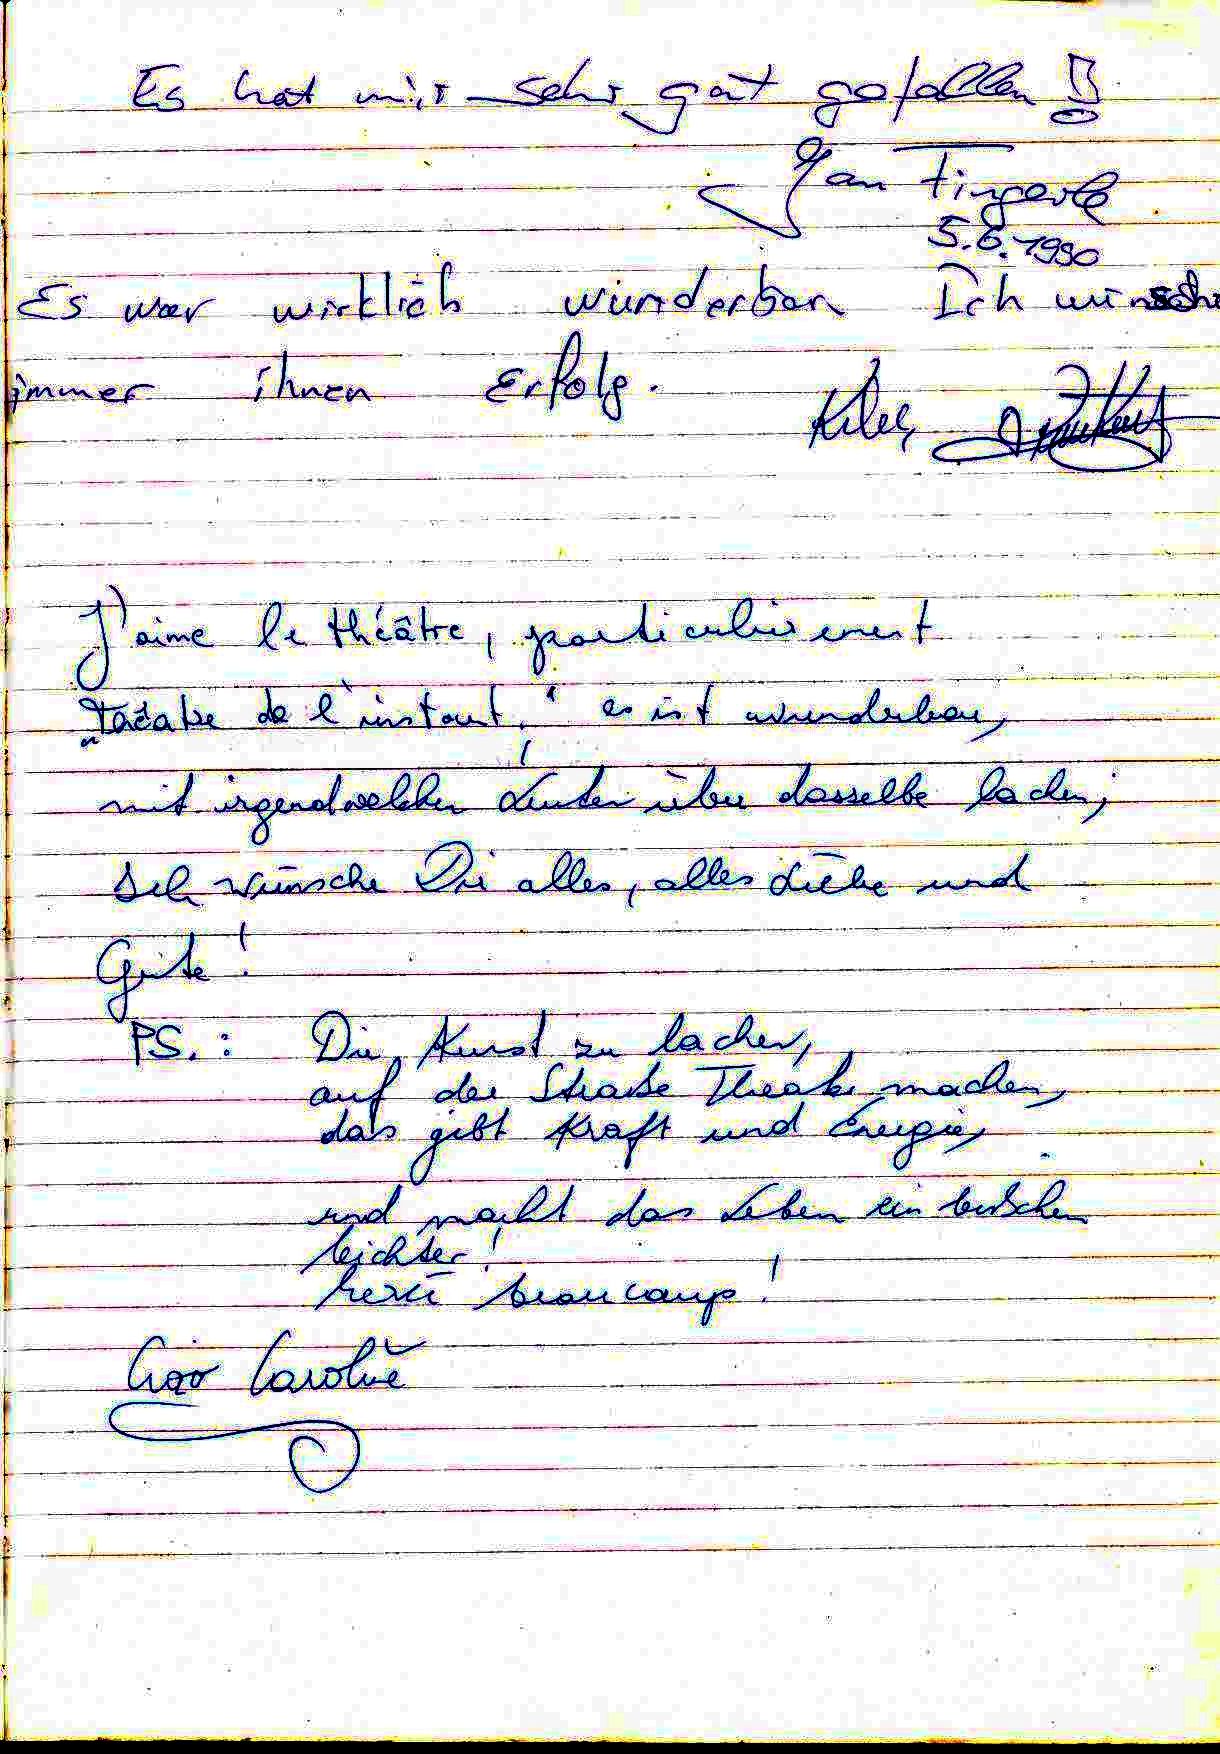 Es hat mir sehr gut gefallen!
Jan Fingerle
5.6.1990
Es war wirklich wunderbar Ich wünsche
immer ihnen Erfolg.
J'aime le théâtre, particulièrement
„Théatre de l'instant." es ist wunderbar,
mit irgendwelchen Leuten über dasselbe lachen,
Ich wünsche Dir alles, alles Liebe und
Gute!
PS.: Die Kunst zu lachen,
auf der Straße Theater machen,
das gibt Kraft und Energie,
und macht das Leben ein bißchen
leichter!
Merci beaucoup!
Ciao Caroline